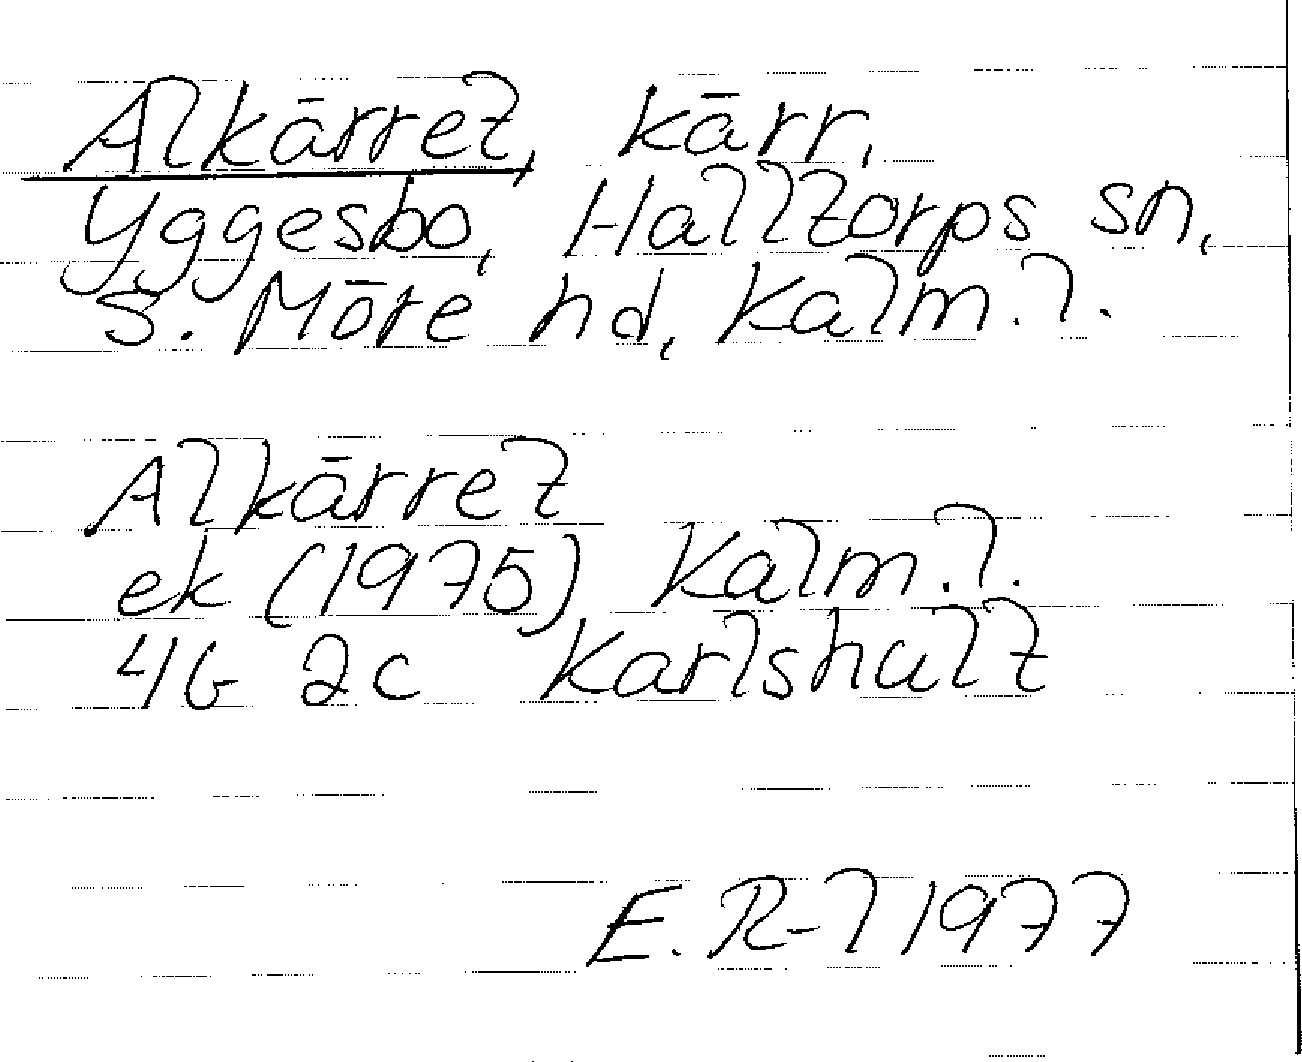 Alkärret, kärr,
Yggesbo, Halltorps sn,
S. Möre hd, Kalm. l.
Alkärret
ek (1975) Kalm. l.
4G 2c Karlshult
E. R-l 1977